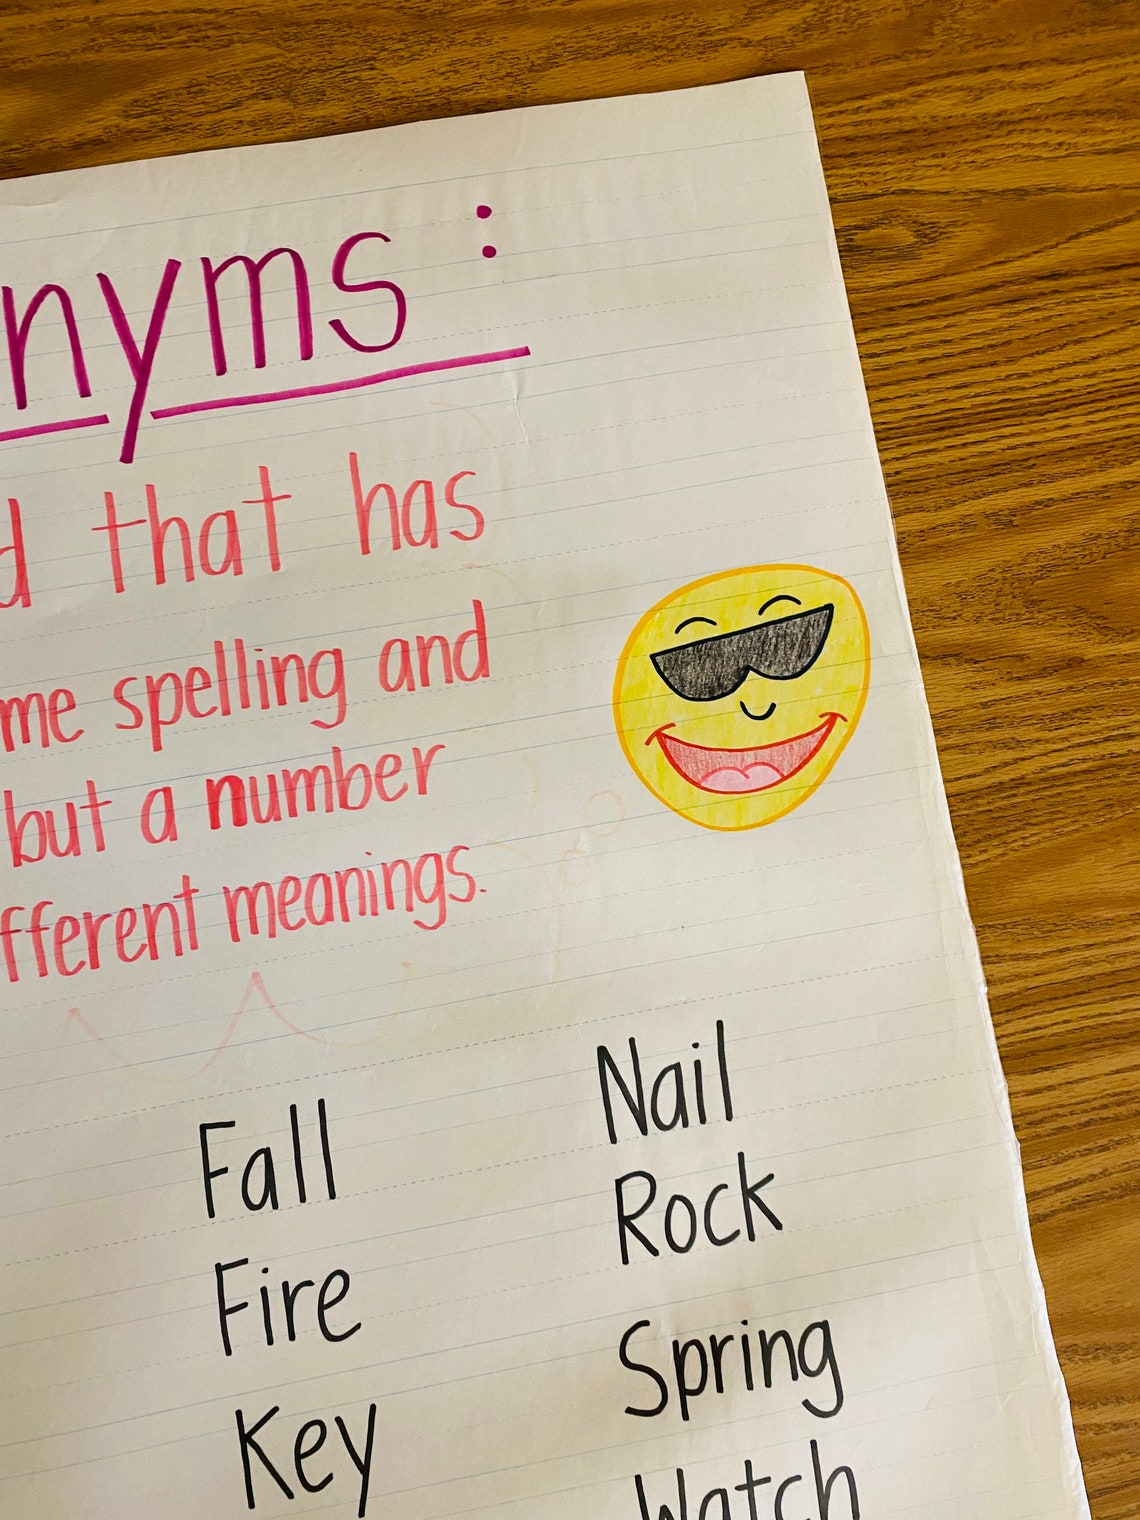 nyms :
d that has
me spelling and
but a number
fferent meanings.
Fall
Nail
Fire
Rock
Key
Spring
Watch